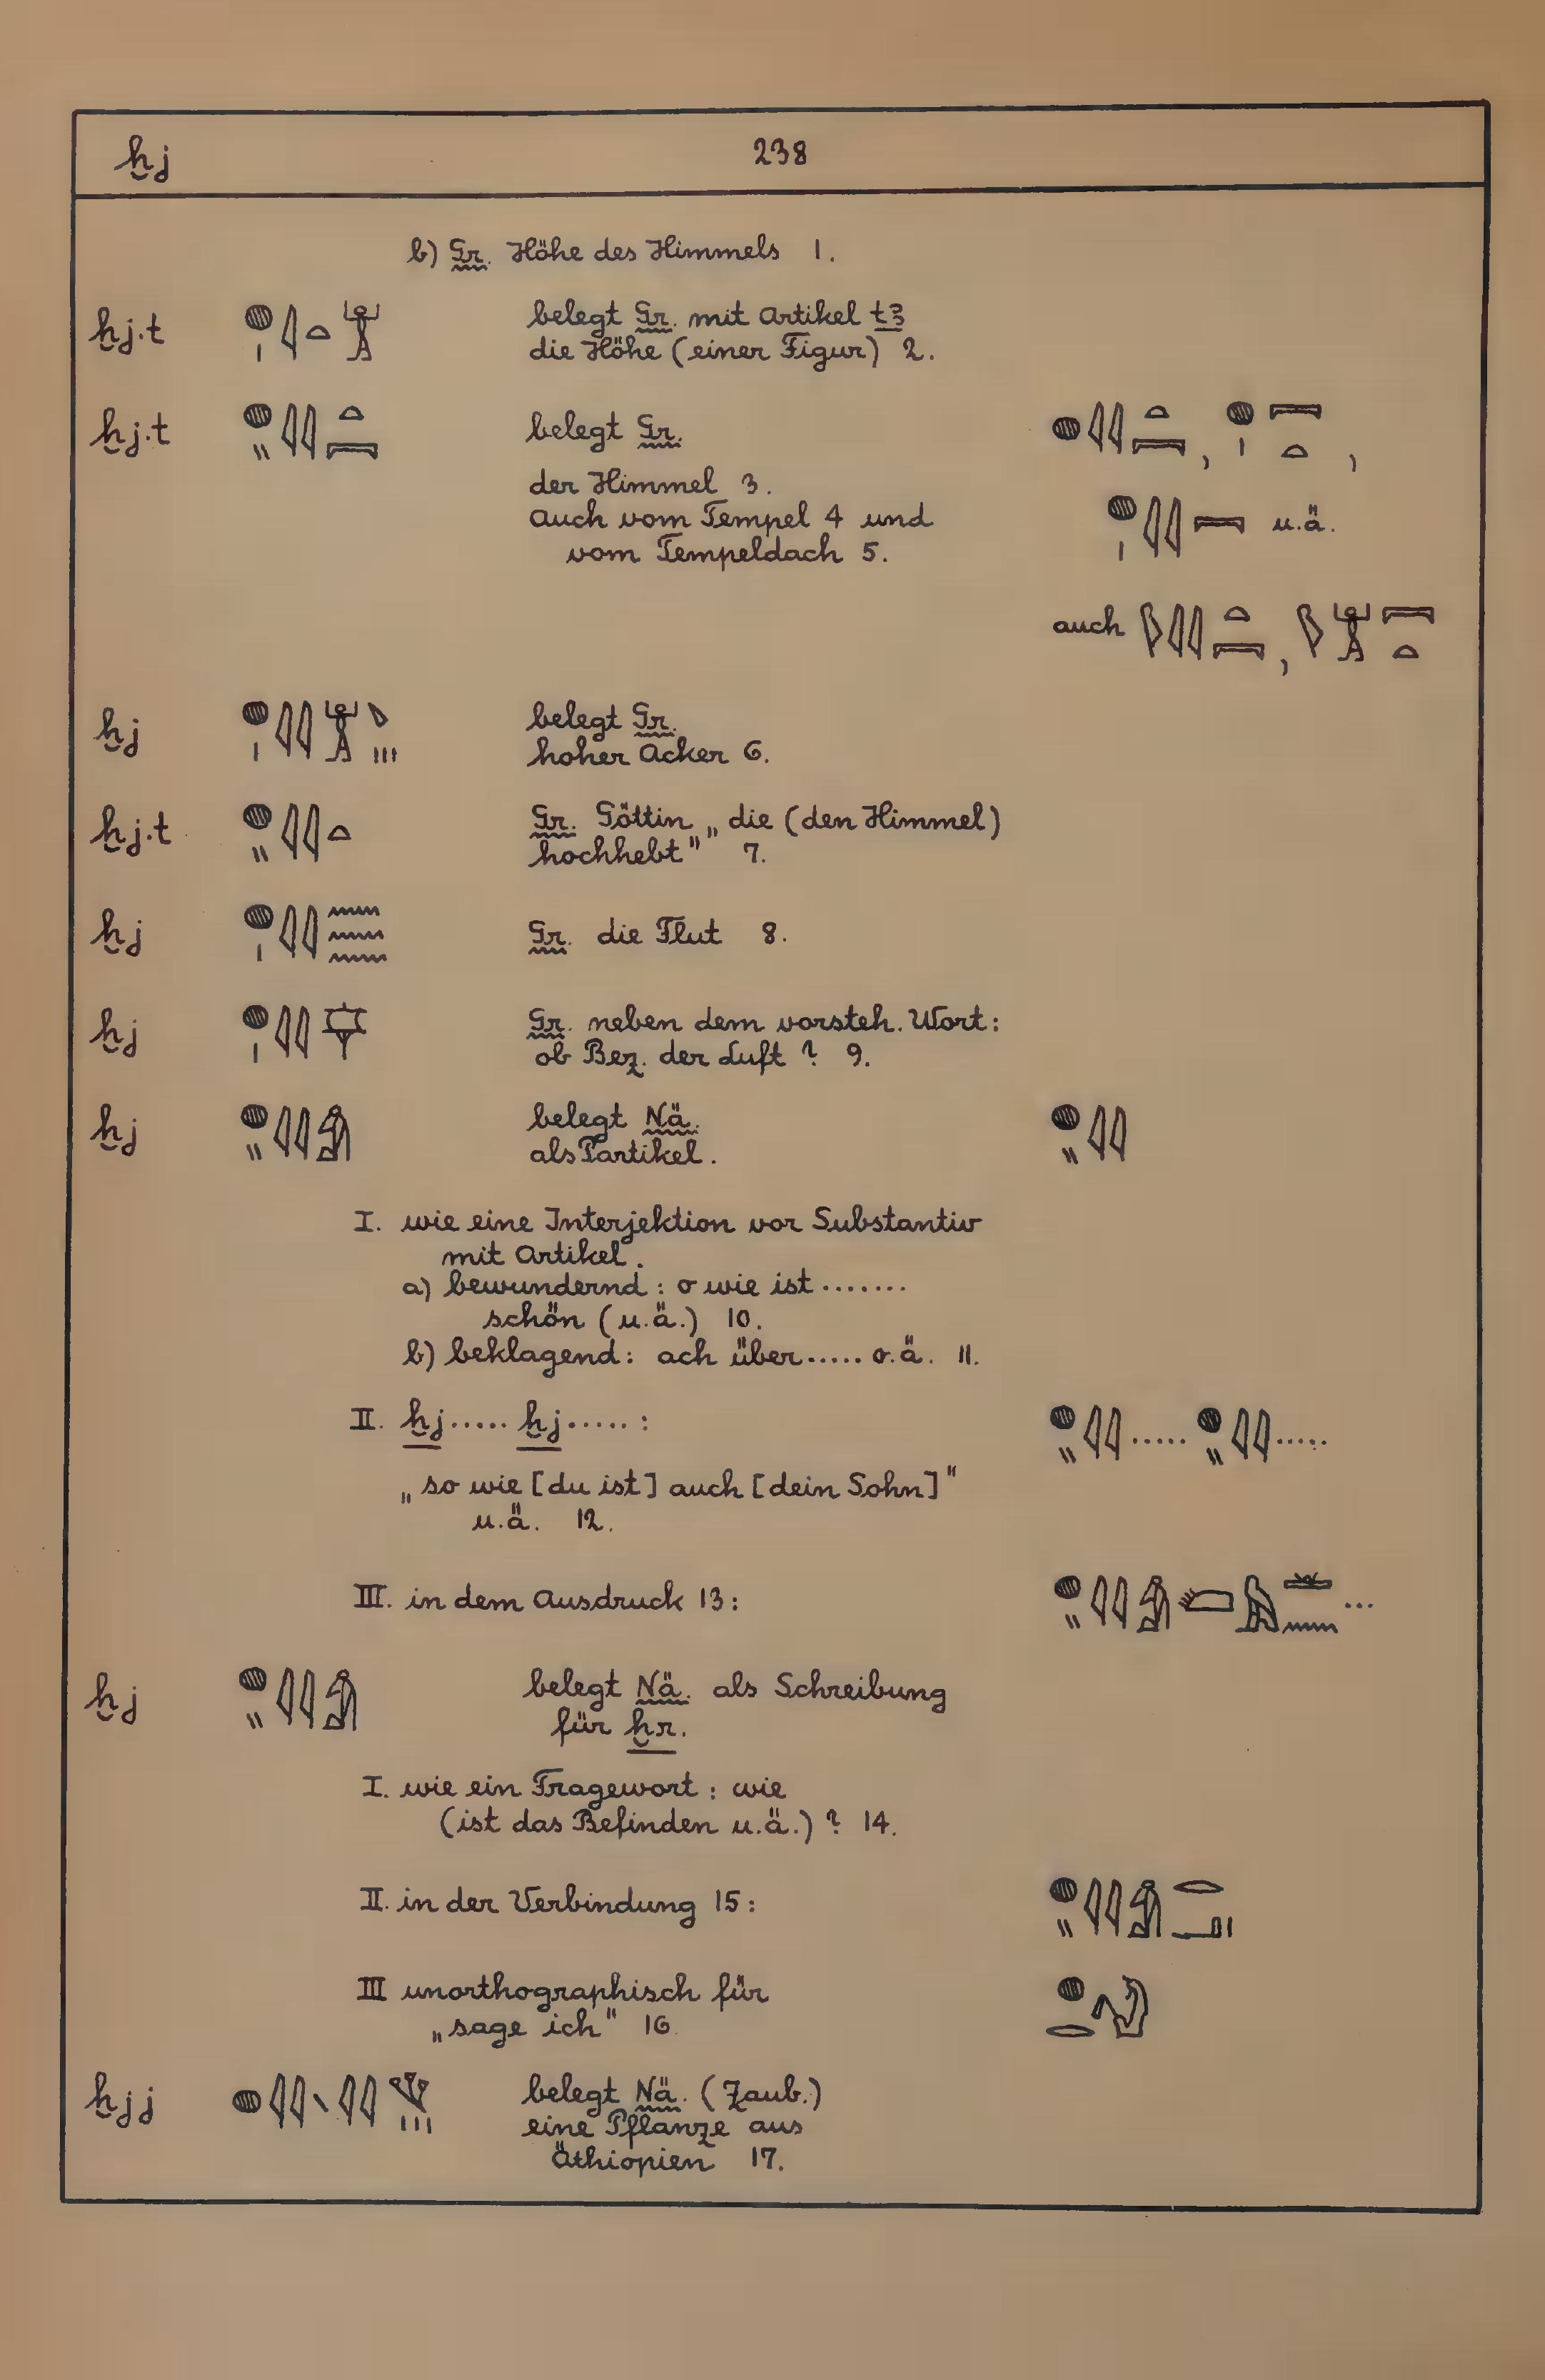 ḫj 238
b) Gr. Höhe des Himmels 1.
ḫj.t belegt Gr. mit Artikel tꜣ
die Höhe (einer Figur) 2.
ḫj.t belegt Gr.
der Himmel 3.
auch vom Tempel 4 und
vom Tempeldach 5. u.ä.
auch
ḫj belegt Gr.
hoher Acker 6.
ḫj.t Gr. Göttin „die (den Himmel)
hochhebt" 7.
ḫj Gr. die Flut 8.
ḫj Gr. neben dem vorsteh. Wort:
ob Bez. der Luft? 9.
ḫj belegt Nä.
als Partikel.
I. wie eine Interjektion vor Substantiv
mit Artikel.
a) bewundernd: o wie ist .......
schön (u.ä.) 10.
b) beklagend: ach über ..... o.ä. 11.
II. ḫj ..... ḫj ..... :
„so wie [du ist] auch [dein Sohn]"
u.ä. 12.
III. in dem Ausdruck 13:
ḫj belegt Nä. als Schreibung
für ḫr.
I. wie ein Fragewort: wie
(ist das Befinden u.ä.)? 14.
II. in der Verbindung 15:
III unorthographisch für
„sage ich" 16.
ḫjj belegt Nä. (Zaub.)
eine Pflanze aus
Äthiopien 17.